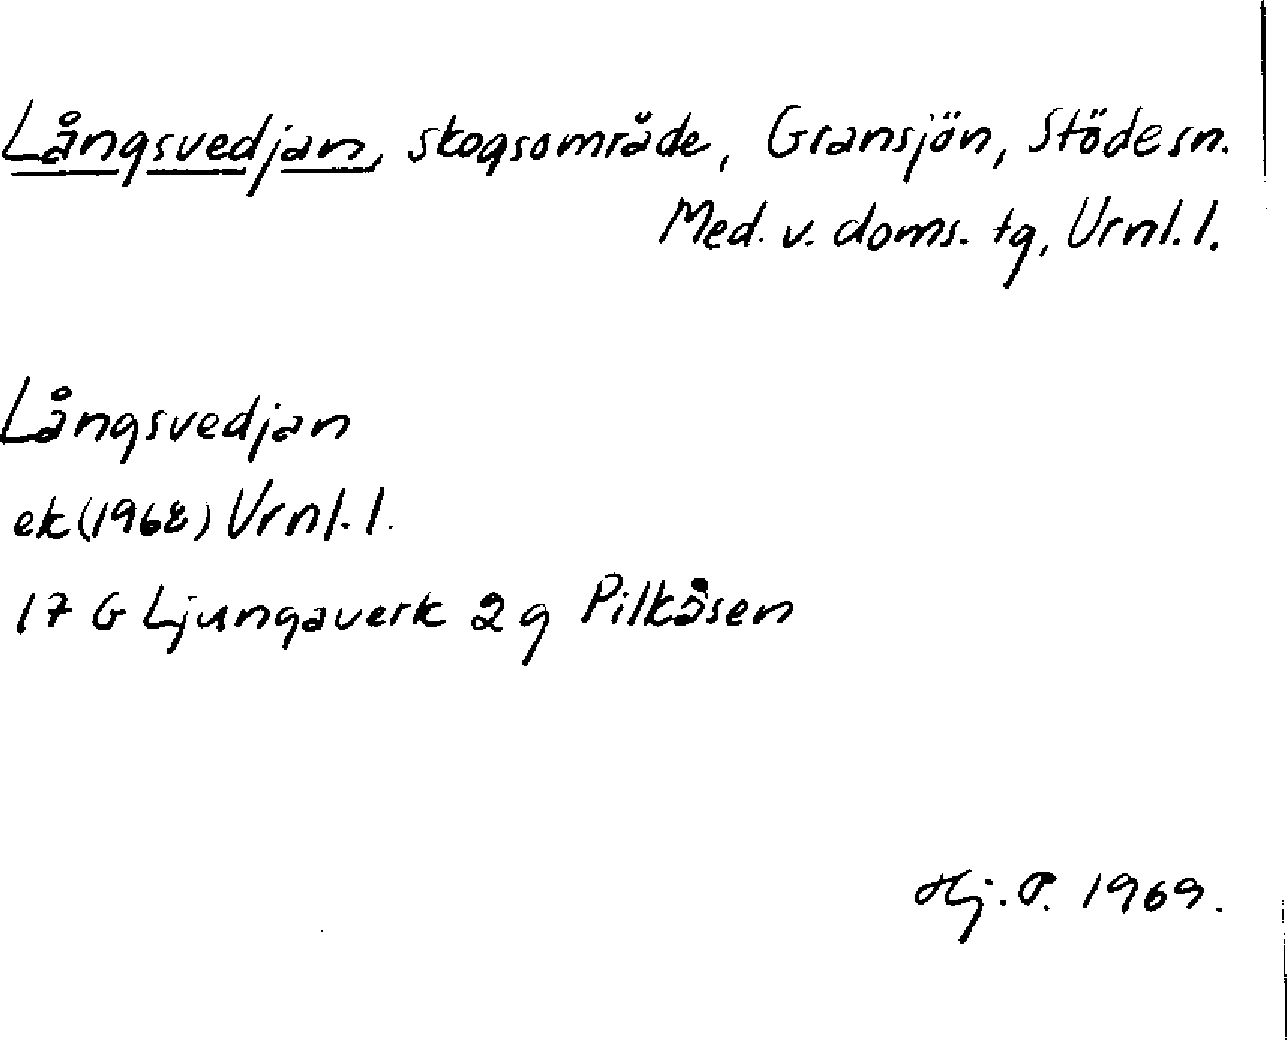 Långsvedjan, skogsområde, Gransjön, Stöde sn.
Med. v. doms. tg, Vrnl. l.
Långsvedjan
ek (1968) Vrnl. l.
17 G Ljungaverk 2 g Pilkåsen
Hj. P. 1969.